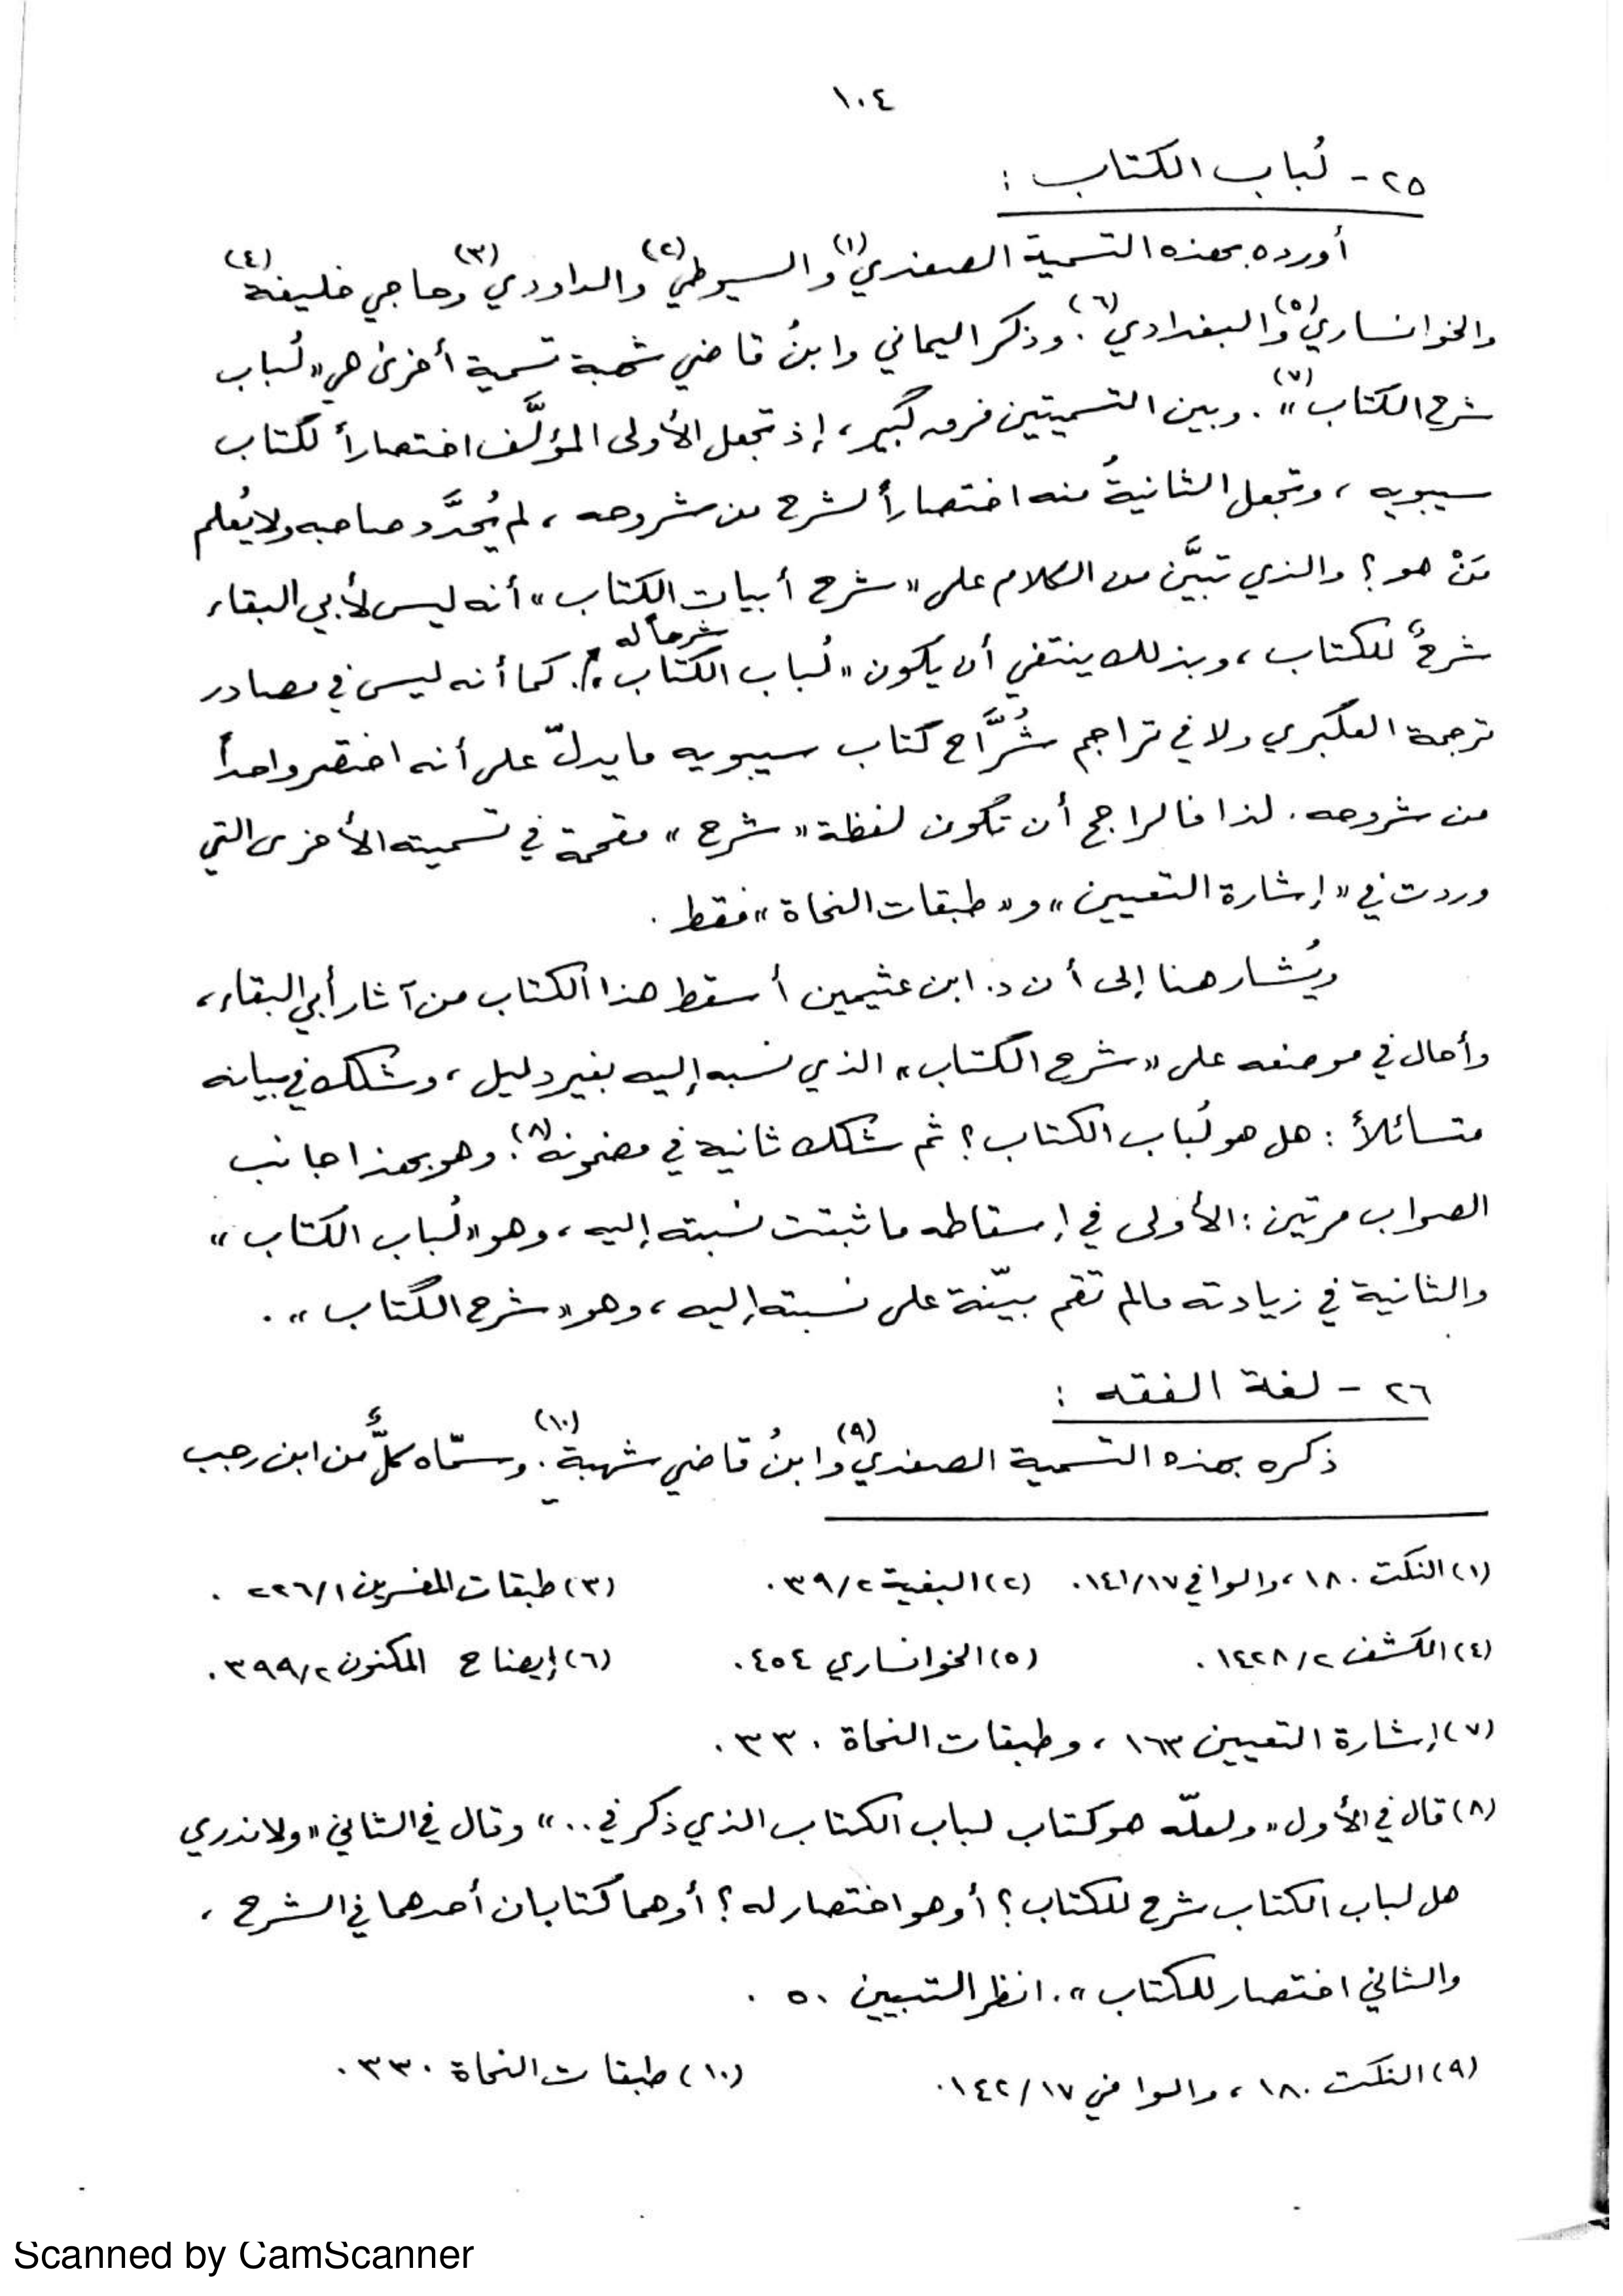 ١٠٤
٢٥ - لُباب الكتاب :
أورده بهذه التسمية الصفدي(١) والسيوطي(٢) والداودي(٣) وحاجي خليفة(٤)
والخوانساري(٥) والبغدادي(٦). وذكر اليماني وابنُ قاضي شهبة تسمية أخرى هي «لُباب
شرح الكتاب»(٧). وبين التسميتين فرق كبير، إذ تجعل الأولى المؤلَّف اختصاراً لكتاب
سيبويه، وتجعل الثانيةُ منه اختصاراً لشرح من شروحه، لم يُحدَّد صاحبه ولا يُعلم
مَنْ هو؟ والذي تبيَّن من الكلام على «شرح أبيات الكتاب» أنه ليس لأبي البقاء
شرحٌ للكتاب، وبذلك ينتفي أن يكون «لُباب الكتاب» شرحاً له. كما أنه ليس في مصادر
ترجمة العكبري ولا في تراجم شُرَّاح كتاب سيبويه ما يدلّ على أنه اختصر واحداً
من شروحه. لذا فالراجح أن تكون لفظة «شرح» مقحمة في تسميته الأخرى التي
وردت في «إشارة التعيين» و«طبقات النحاة» فقط.
ويُشار هنا إلى أن د. ابن عثيمين أسقط هذا الكتاب من آثار أبي البقاء،
وأحال في موضعه على «شرح الكتاب» الذي نسبه إليه بغير دليل، وشكك في بيانه
متسائلاً: هل هو لُباب الكتاب؟ ثم شكك ثانية في مضمونه(٨). وهو بهذا جانب
الصواب مرتين: الأولى في إسقاطه ما ثبتت نسبته إليه، وهو «لُباب الكتاب»
والثانية في زيادته ما لم تقم بيّنة على نسبته إليه، وهو «شرح الكتاب».
٢٦ - لغة الفقه :
ذكره بهذه التسمية الصفدي(٩) وابنُ قاضي شهبة(١٠). وسمّاه كلٌّ من ابن رجب
(١) النكت ١٨٠، والوافي ١٤١/١٧. (٢) البغية ٣٩/٢. (٣) طبقات المفسرين ٢٢٦/١.
(٤) الكشف ١٤٢٨/٢. (٥) الخوانساري ٤٥٤. (٦) إيضاح المكنون ٣٩٩/٢.
(٧) إشارة التعيين ١٦٣، وطبقات النحاة ٣٣٠.
(٨) قال في الأول «ولعلّه هو كتاب لباب الكتاب الذي ذكر في..» وقال في الثاني «ولا ندري
هل لباب الكتاب شرح للكتاب؟ أو هو اختصار له؟ أو هما كتابان أحدهما في الشرح،
والثاني اختصار للكتاب». انظر التبيين ٥٠.
(٩) النكت ١٨٠، والوافي ١٤٢/١٧. (١٠) طبقات النحاة ٣٣٠.
Scanned by CamScanner